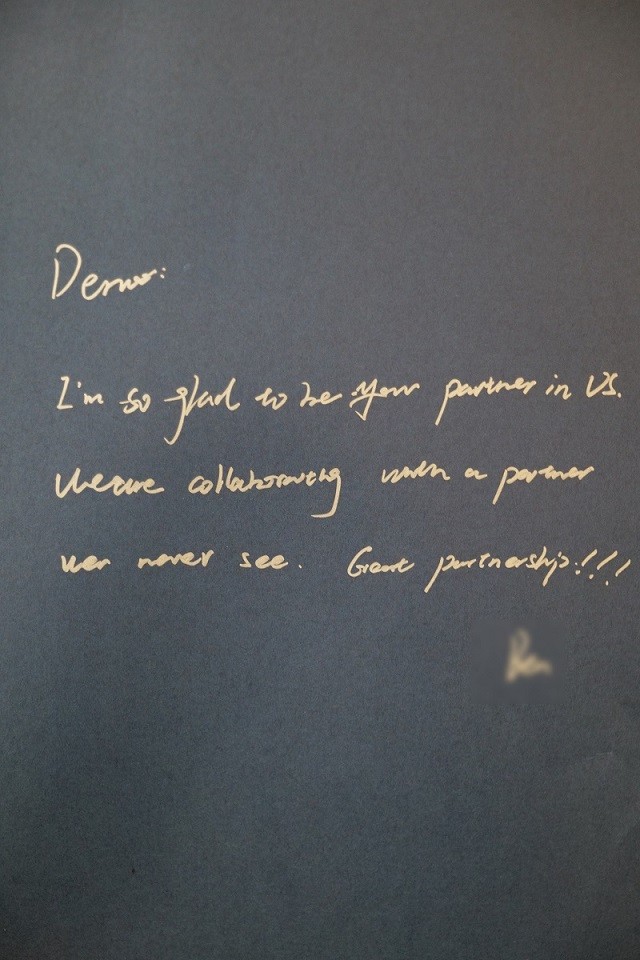 I'm so glad to be your partner in US.
collaborating with a partner
never see. Great partnership!!!